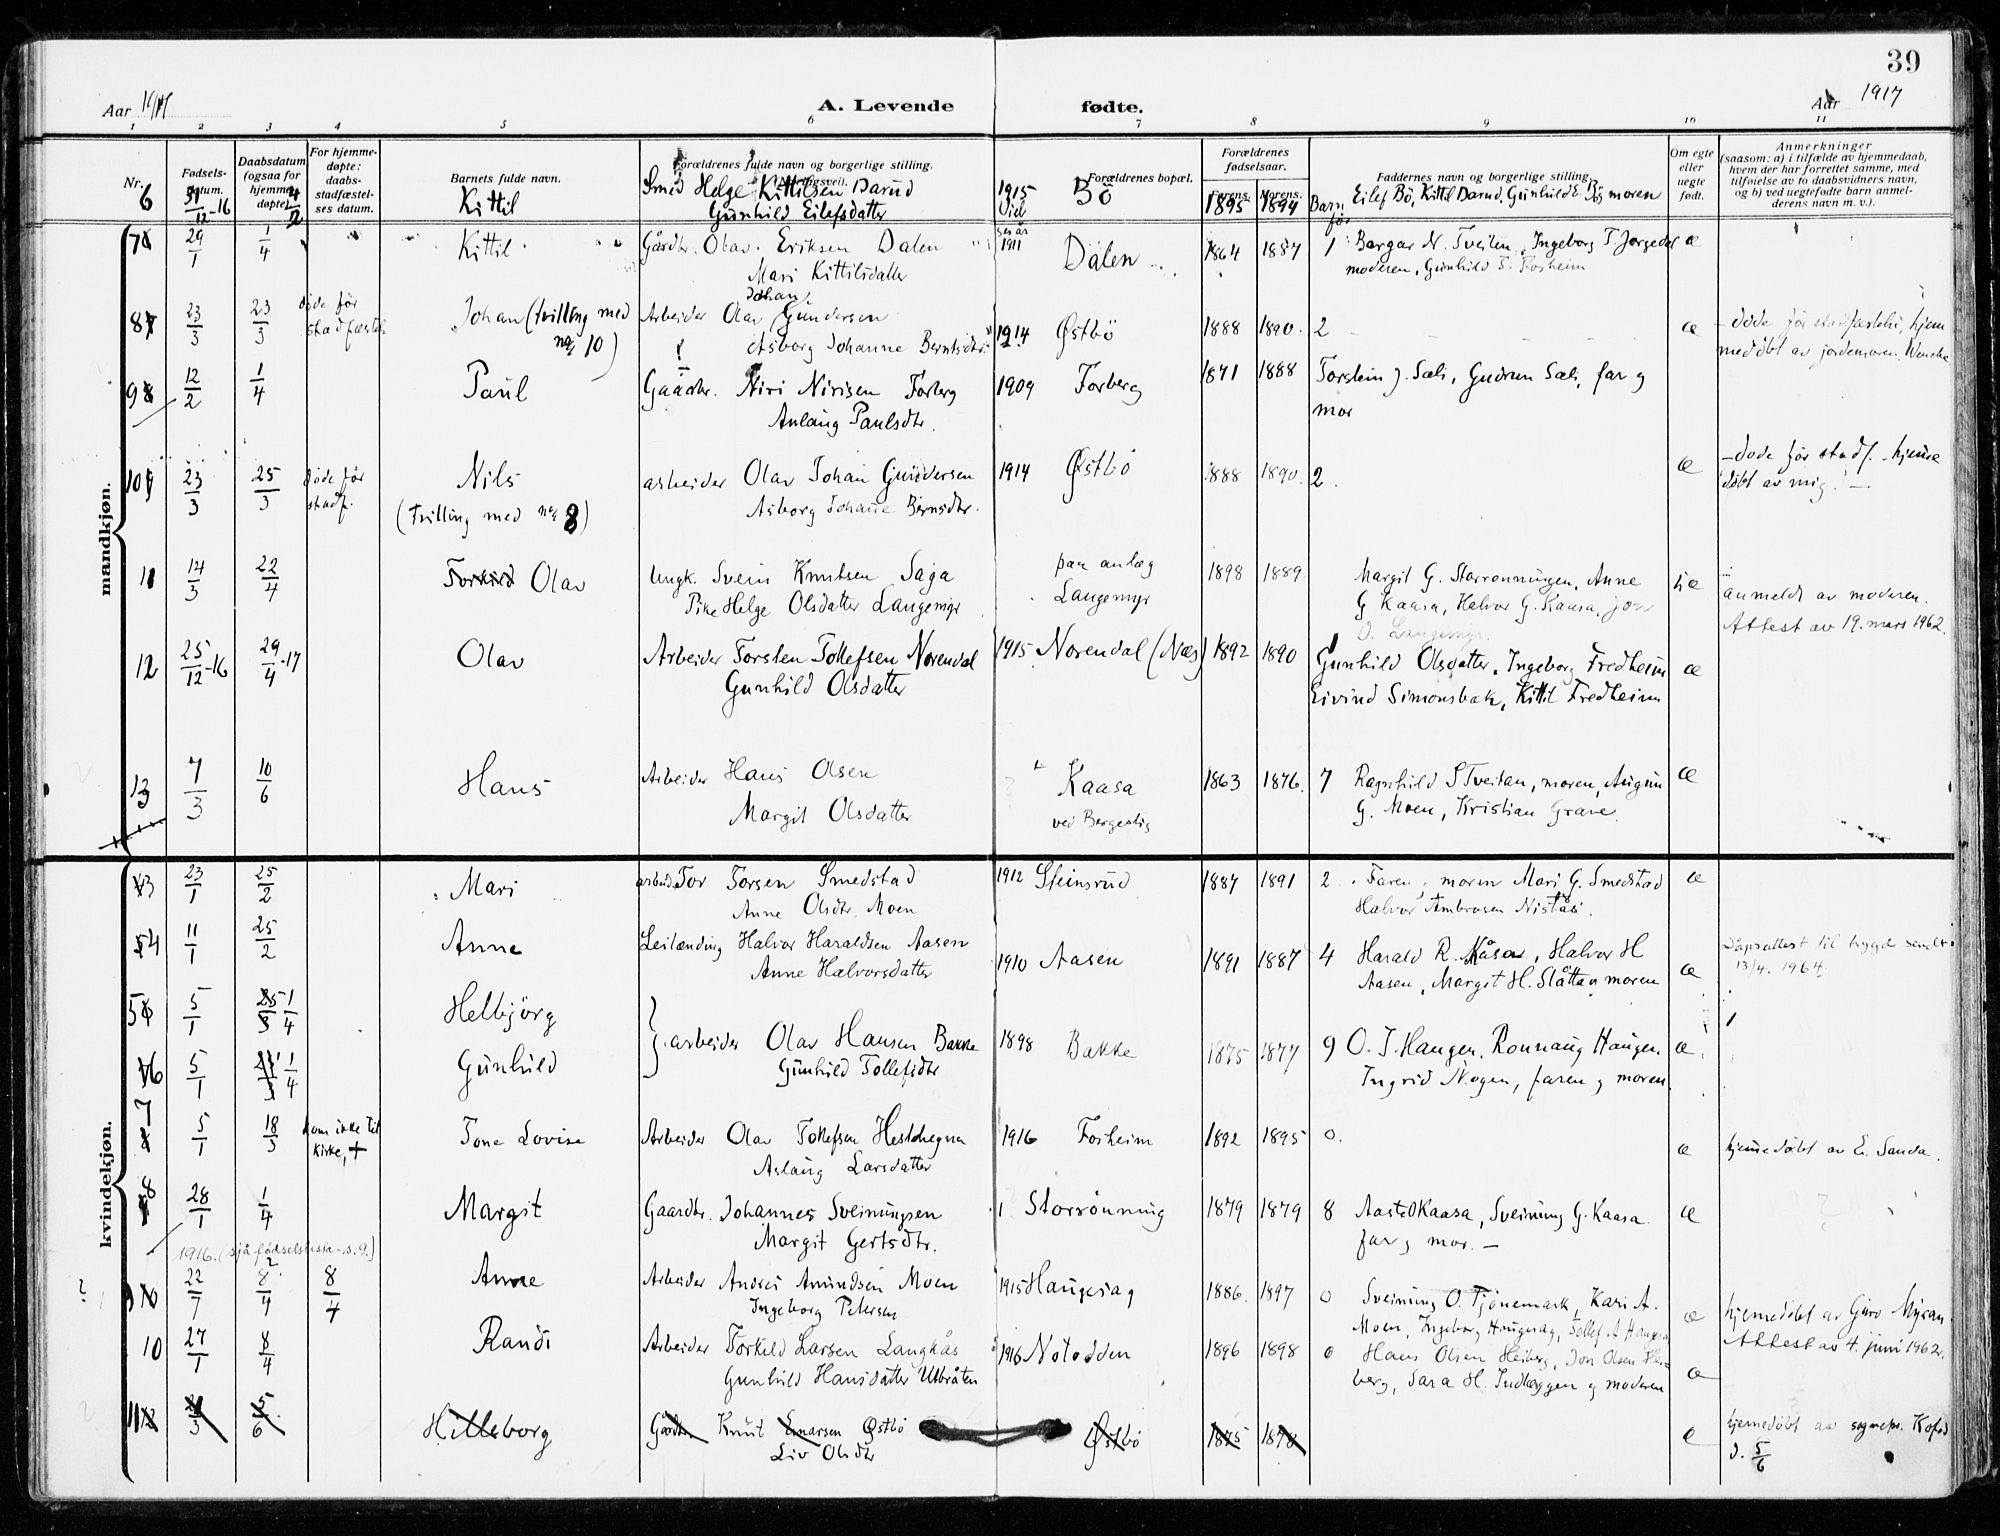 39
Aar 1917 A. Levende fødte. Aar 1917
1 2 3 4 5 6 7 8 9 10 11
Nr. Fødsels-datum. Daabsdatum (ogsaa for hjemme-døpte). For hjemme-døpte: daabs-stadfæstel-ses datum. Barnets fulde navn. Forældrenes fulde navn og borgerlige stilling. Forældrenes bopæl. Forældrenes fødselsaar. Farens. Morens. Faddernes navn og borgerlige stilling. Om egte eller uegte født. Anmerkninger (saasom: a) i tilfælde av hjemmedaab, hvem der har forrettet samme, med tilføielse av to daabsvidners navn, og b) ved uegtefødte barn anmel-derens navn m. v.).
6 31/12-16 Kittil Smed Helge Kittilsen Darud 1915 Bö 1895 1894 Barn før Eilef Bö, Kittil Darud, Gunhild E. Bö, moren
Gunhild Eilefsdatter Viet
mandkjøn.
7 29/1 1/4 Kittil Gårdbr. Olav Eriksen Dalen 1911 Dalen 1864 1887 1 Bergar N. Tveiten, Ingeborg T. Jorgedal æ
Mari Kittilsdatter moderen, Gunhild T. Fosheim
8 23/3 23/3 døde før stadfæstels Johan (tvilling med no 10) Arbeider Olav Johan Gundersen 1914 Østbö 1888 1890 2 æ - døde før stadfæstelse, hjem
Asborg Johanne Berntsdtr. medöbt av jordemoren Wencke
9 12/2 1/4 Paul Gaardbr. Niri Nirisen Forberg 1909 Forberg 1871 1888 Torstein J. Sæli, Gudrun Sæli, far og
Anlaug Paulsdtr. mor
10 23/3 25/3 døde før stadf. Nils arbeider Olav Johan Gundersen 1914 Østbö 1888 1890 2. æ - døde før stadf. - hjemme
(tvilling med no 8) Asborg Johanne Berntsdtr. döbt av mig. -
11 14/3 22/4 Torkild Olav Ungk. Svein Knutsen Saga paa anlæg 1898 1889 Margit G. Storrönningen, Anne
Pike Helge Olsdatter Langemyr Langemyr G Kaasa, Halvor G. Kaasa, Jon anmeldt av moderen.
O. Langemyr. Attest av 19. mars 1962.
12 25/12-16 29/4-17 Olav Arbeider Torsten Tollefsen Norendal 1915 Norendal (Næs) 1892 1890 1 Gunhild Olsdatter, Ingeborg Fredheim æ
Gunhild Olsdatter Eivind Simonsbak, Kittil Fredheim
13 7/3 10/6 Hans Arbeider Hans Olsen Kaasa 1863 1876 7 Ragnhild S Tveitan, moren, Aagun æ
Margit Olsdatter ved Bergerlig G. Moen, Kristian Grave.
kvindekjøn.
3 23/1 25/2 Mari arbeid. Tor Torsen Smedstad 1912 Steinsrud 1887 1891 2 Faren, moren Mari G. Smedstad æ
Anne Olsdtr. Moen Halvor Ambrosen Nistås.
4 11/1 25/2 Anne Leilænding Halvor Haraldsen Aasen 1910 Aasen 1891 1887 4 Harald R. Kåsa, Halvor H æ Dåpsattest til trygd sendt
Anne Halvorsdatter Aasen, Margit H. Slåttan moren 13/4. 1964.
5 5/1 1/4 Helbjörg
} arbeider Olav Hansen Bakke 1898 Bakke 1875 1877 9 O. J. Haugen, Rönnaug Haugen. æ
6 5/1 1/4 Gunhild Gunhild Tollefsdtr Ingrid Nogen, faren og moren.
7 5/1 18/3 kom ikke til kirke, + Tone Lovise Arbeider Olav Tollefsen Hesthegna 1916 Fosheim 1892 1895 0. æ hjemmedöbt av E. Sanda.
Aslaug Larsdatter
8 28/1 1/4 Margit Gaardbr. Johannes Sveinungsen Storrönning 1879 1879 8 Aaste O Kaasa, Sveinung G. Kaasa æ
Margit Gertsdtr. far og mor. -
1916. (sjå fødselslista - s. 9.)
9 22/7 8/4 8/4 Anne Arbeider Andres Amundsen Moen 1915 Haugesag 1886. 1897 0 Sveinung O. Tjönemark, Kari A. æ hjemedöbt av Guro Myran.
Ingeborg Petersen Moen, Ingeborg Haugesag, Tollef A Haugesag Attest av 4. juni 1962.
10 27/1 8/4 Randi Arbeider Torkild Larsen Langkås 1916 Notodden 1896 1898 0 Hans Olsen Heiberg, Jon Olsen Hei-
Gunhild Hansdatter Utbråten berg, Sara H. Indlæggen og moderen æ
11 5/6 Hilleborg Gårdbr. Knut Einarsen Østbö Østbö 1875 1878 æ hjemedöbt av sognepr. Kofod
Liv Olsdtr d. 5/6